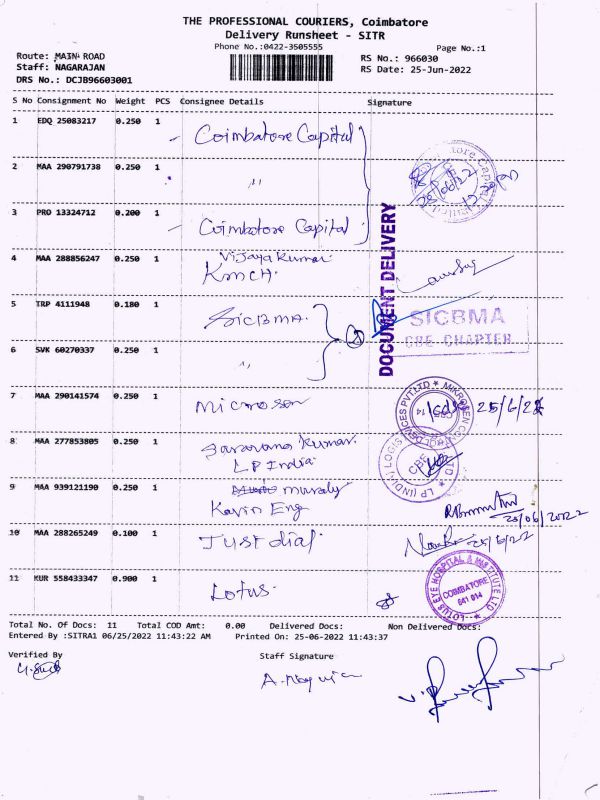 THE PROFESSIONAL COURIERS, Coimbatore
Delivery Runsheet - SITR
Phone No.:0422-3505555
Page No.:1
Route: MAIN ROAD
Staff: NAGARAJAN
DRS No.: DCJB96603001
RS No.: 966030
RS Date: 25-Jun-2022
S No Consignment No Weight PCS Consignee Details Signature
1 EDQ 25083217 0.250 1 Coimbatore Capital
2 MAA 290791738 0.250 1 〃
3 PRO 13324712 0.200 1 Coimbatore Capital
4 MAA 288856247 0.250 1 Vijaya Kumar
KMCH
5 TRP 4111948 0.180 1 SICBMA.
6 SVK 60270337 0.250 1 〃
7 MAA 290141574 0.250 1 Microsen
25/6/22
8 MAA 277853805 0.250 1 Saravana Kumar
LP India
9 MAA 939121190 0.250 1 muraly
Kavin Eng
25/06/2022
10 MAA 288265249 0.100 1 Just dial
25/6/22
11 KUR 558433347 0.900 1 Lotus
DOCUMENT DELIVERY
SICBMA
CBE CHAPTER
LOTUS EYE HOSPITAL & INSTITUTE LTD
COIMBATORE
641 014
Total No. Of Docs: 11 Total COD Amt: 0.00 Delivered Docs: Non Delivered Docs:
Entered By :SITRA1 06/25/2022 11:43:22 AM Printed On: 25-06-2022 11:43:37
Verified By
Staff Signature